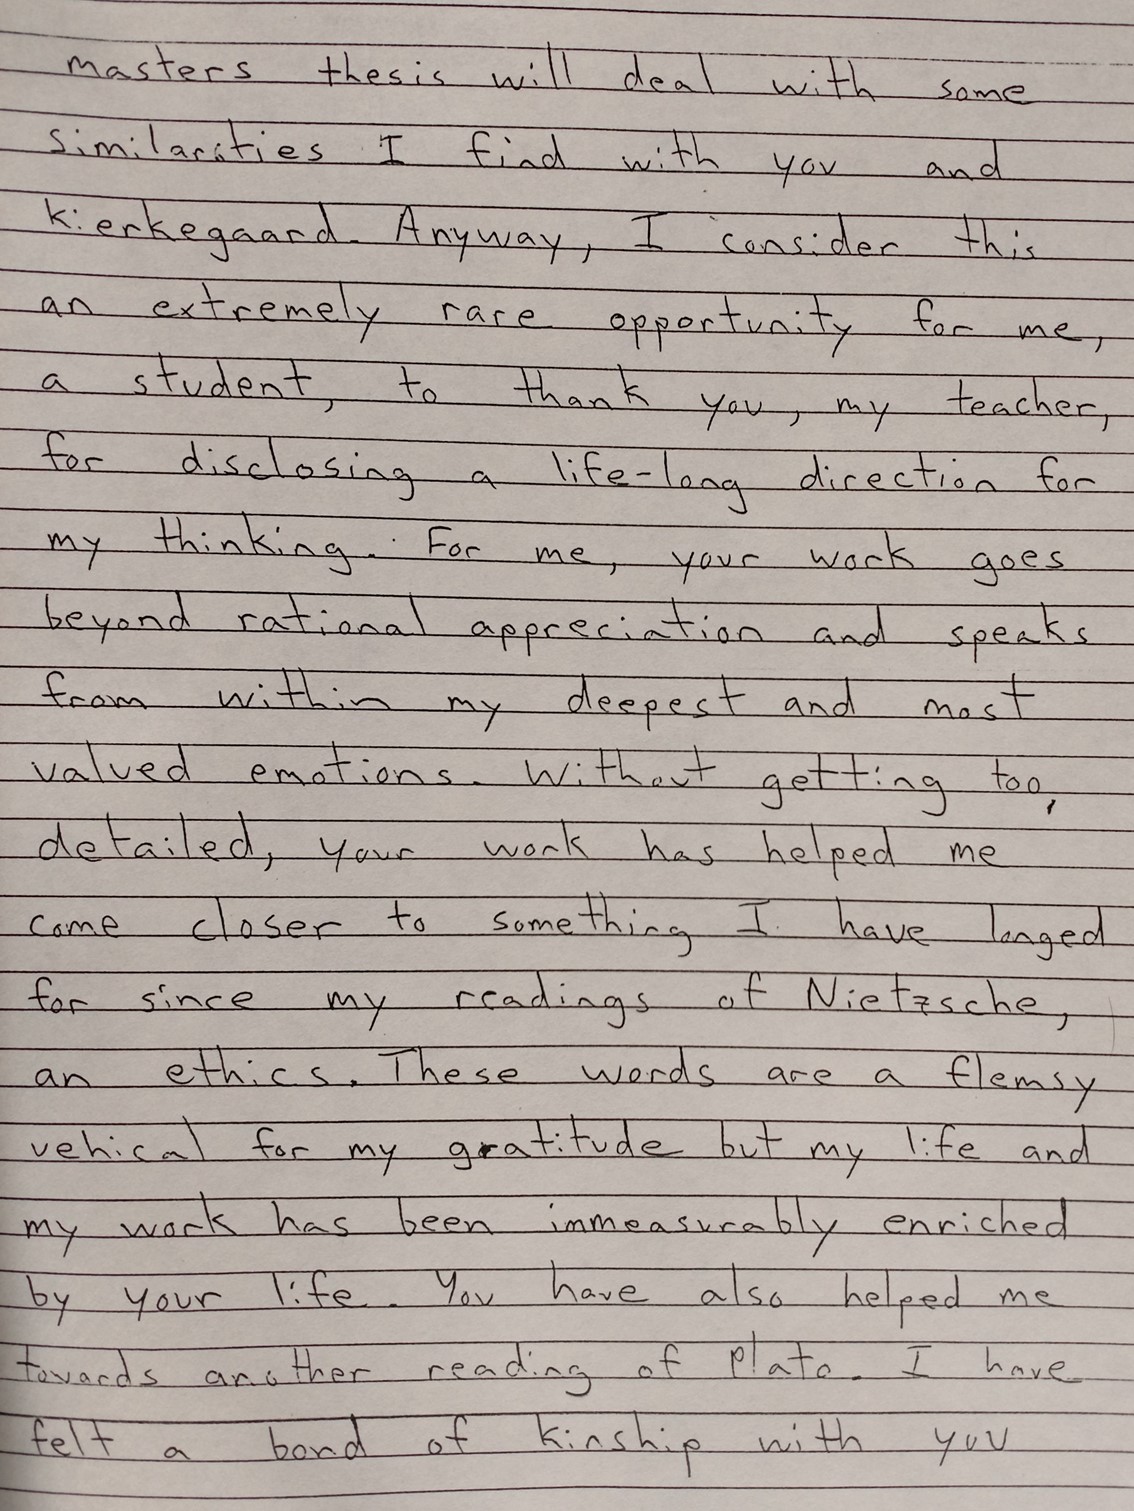 masters thesis will deal with some
similarities I find with you and
Kierkegaard. Anyway, I consider this
an extremely rare opportunity for me,
a student, to thank you, my teacher,
for disclosing a life-long direction for
my thinking. For me, your work goes
beyond rational appreciation and speaks
from within my deepest and most
valued emotions. Without getting too,
detailed, your work has helped me
come closer to something I have longed
for since my readings of Nietzsche,
an ethics. These words are a flemsy
vehical for my gratitude but my life and
my work has been immeasurably enriched
by your life. You have also helped me
towards another reading of Plato. I have
felt a bond of kinship with you